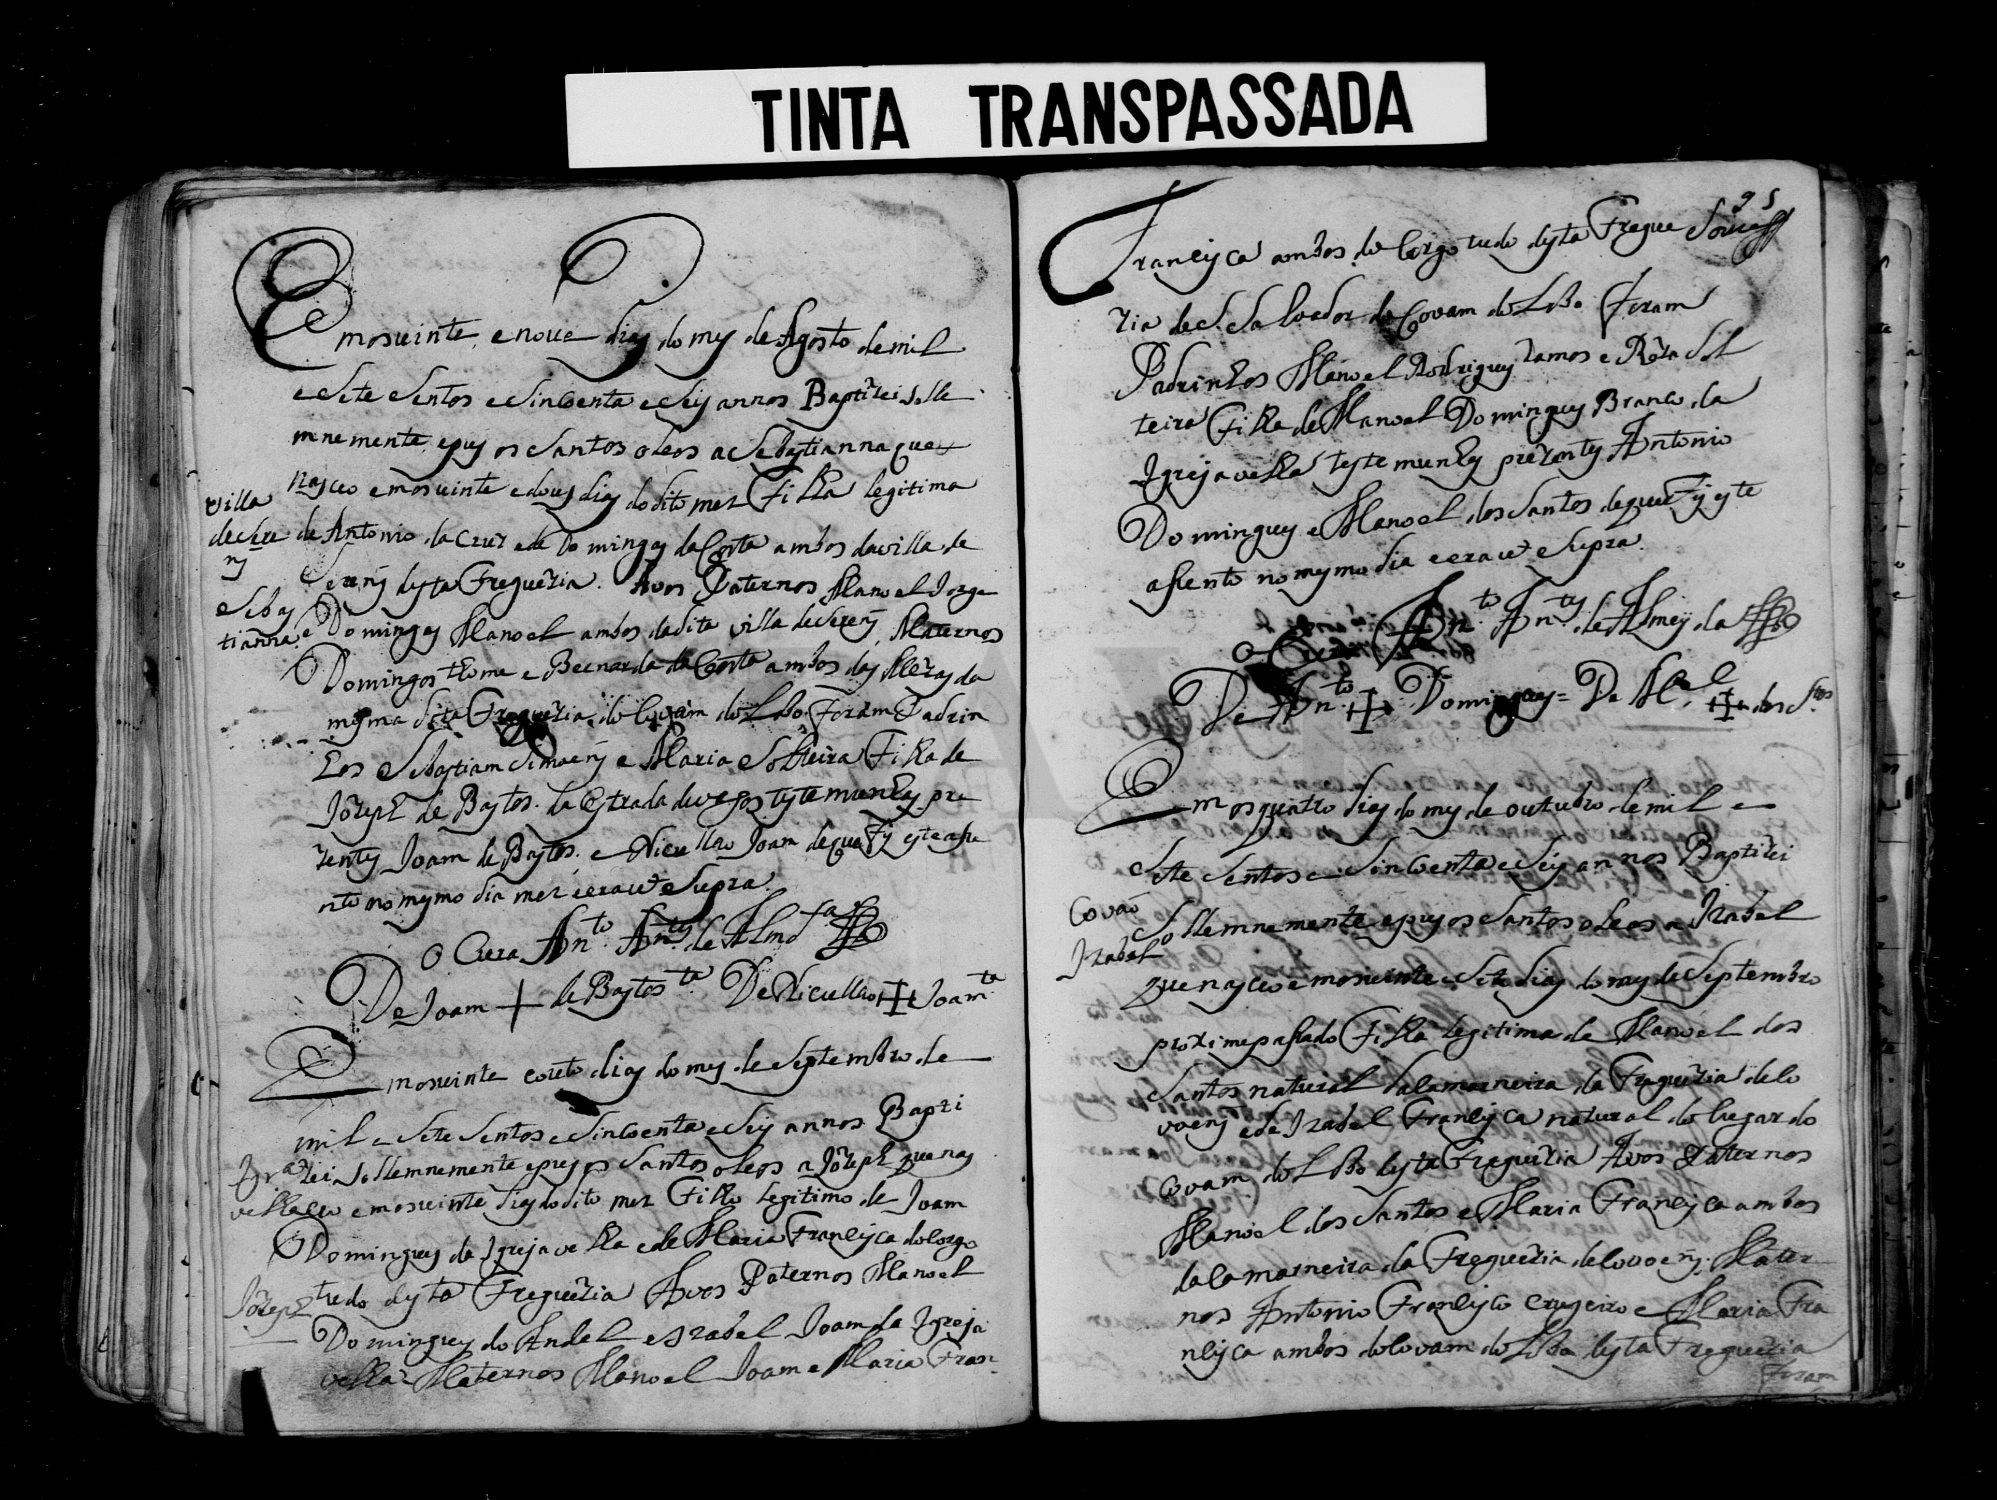 TINTA TRANSPASSADA
Emosvinte, e nove dias do mes de Agosto de mil
e sete sentos e sincoenta e seis annos Baptizei solle
mnemente, e pus os santos oleos a Sebastianna que
nasceo emosvinte e dous dias do dito mes Filha legitima
villa
de Sere
ns
Sebas
tianna
de Antonio da Cruz e de Domingas da Costa ambos da villa de
Serens desta Freguezia. Avos Paternos Manoel Jorge
e Domingas Manoel ambos da dita villa de Serens, Maternos
Domingos thome e Bernarda da Costa ambos das Mezas da
mesma dita Freguezia do Covam do Lobo Foram Padrin
hos Sebastiam Simoens e Maria Solteira Filha de
Jozeph de Bastos da Estrada de vagos testemunhas pre
zentes Joam de Bastos, e Nicullao Joam de que Fis este asse
nto no mesmo dia mes e era ut Supra.
O Cura Anto. Antes. de Almda
De Joam + de Bastos ta De Nicullao + Joam ta
Emosvinte e outo dias do mes de Septembro de
mil e sete sentos e sincoenta e seis annos Bapti
Igra
velha
Jozeph
zei sollemnemente e pus os santos oleos a Jozeph que nas
ceo emosvinte dias do dito mes Filho legitimo de Joam
Domingues da Igreja velha e de Maria Francisca do Corgo
tudo desta Freguezia Avos Paternos Manoel
Domingues do Andel e Izabel Joam da Igreja
velha Maternos Manoel Joam e Maria Fran-
95
Francisca ambos do Corgo tudo desta Fregue
zia de S. Salvador do Covam do Lobo Foram
Padrinhos Manoel Rodrigues Ramos e Roza Sol
teira Filha de Manoel Domingues Branco da
Igreja velha testemunhas prezentes Antonio
Domingues e Manoel dos Santos de que Fis este
asento no mesmo dia e era ut Supra.
O Cura Anto. Antes. de Almeyda
De Anto. + Domingues = De Mel. + dos Stos
Emosquatro dias do mes de outubro de mil e
sete sentos e sincoenta e seis annos Baptizei
Covao
Izabel
sollemnemente e pus os santos oleos a Izabel
que nasceo emosvinte e sete dias do mes de Septembro
proximepassado Filha legitima de Manoel dos
Santos natural da lamarneira da Freguezia de Co
voens e de Izabel Francisca natural do lugar do
Covam do Lobo desta Freguezia Avos Paternos
Manoel dos Santos e Maria Francisca ambos
da lamarneira da Freguezia de Covoens, Mater
nos Antonio Francisco Cruzeiro e Maria Fra
ncisca ambos do Covam do Lobo desta Freguezia
Foram